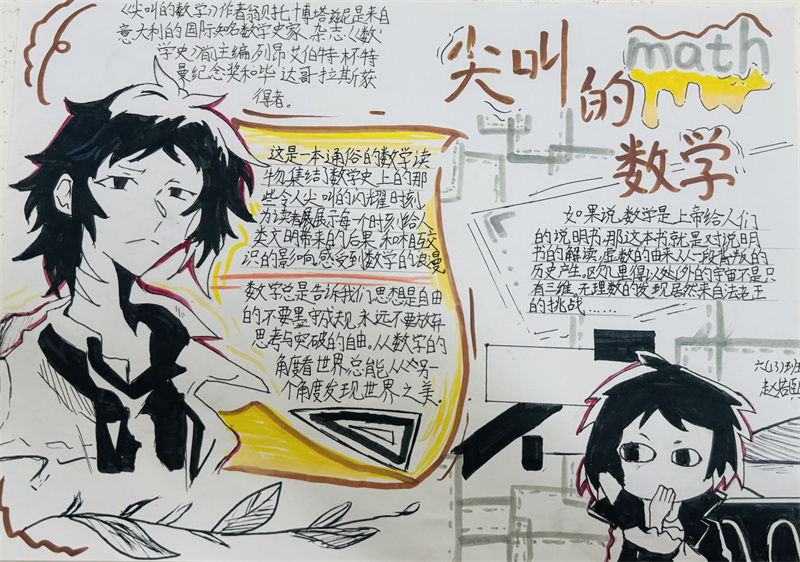 《尖叫的数学》作者翁贝托·博塔兹尼是来自
意大利的国际知名数学史家、杂志《数
学史》前主编,列昂艾伯特·怀特
曼纪念奖和毕达哥拉斯获
得者。
尖叫的
math
数学
这是一本通俗的数学读
物,集结了数学史上的那
些令人尖叫的闪耀时刻,
为读者展示每个时刻给人
类文明带来的后果和
识的影响,感受到数学的浪漫
数学总是告诉我们思想是自由
的,不要墨守成规,永远不要放弃
思考与突破的自由。从数学的
角度看世界,总能从另一
个角度发现世界之美。
如果说,数学是上帝给人们
的说明书,那这本书就是对说明
书的解读。虚数的由来从一段
历史产生。欧几里得以外的宇宙不是只
有三维,无理数的发现居然来自法老王
的挑战……
六(3)班
赵